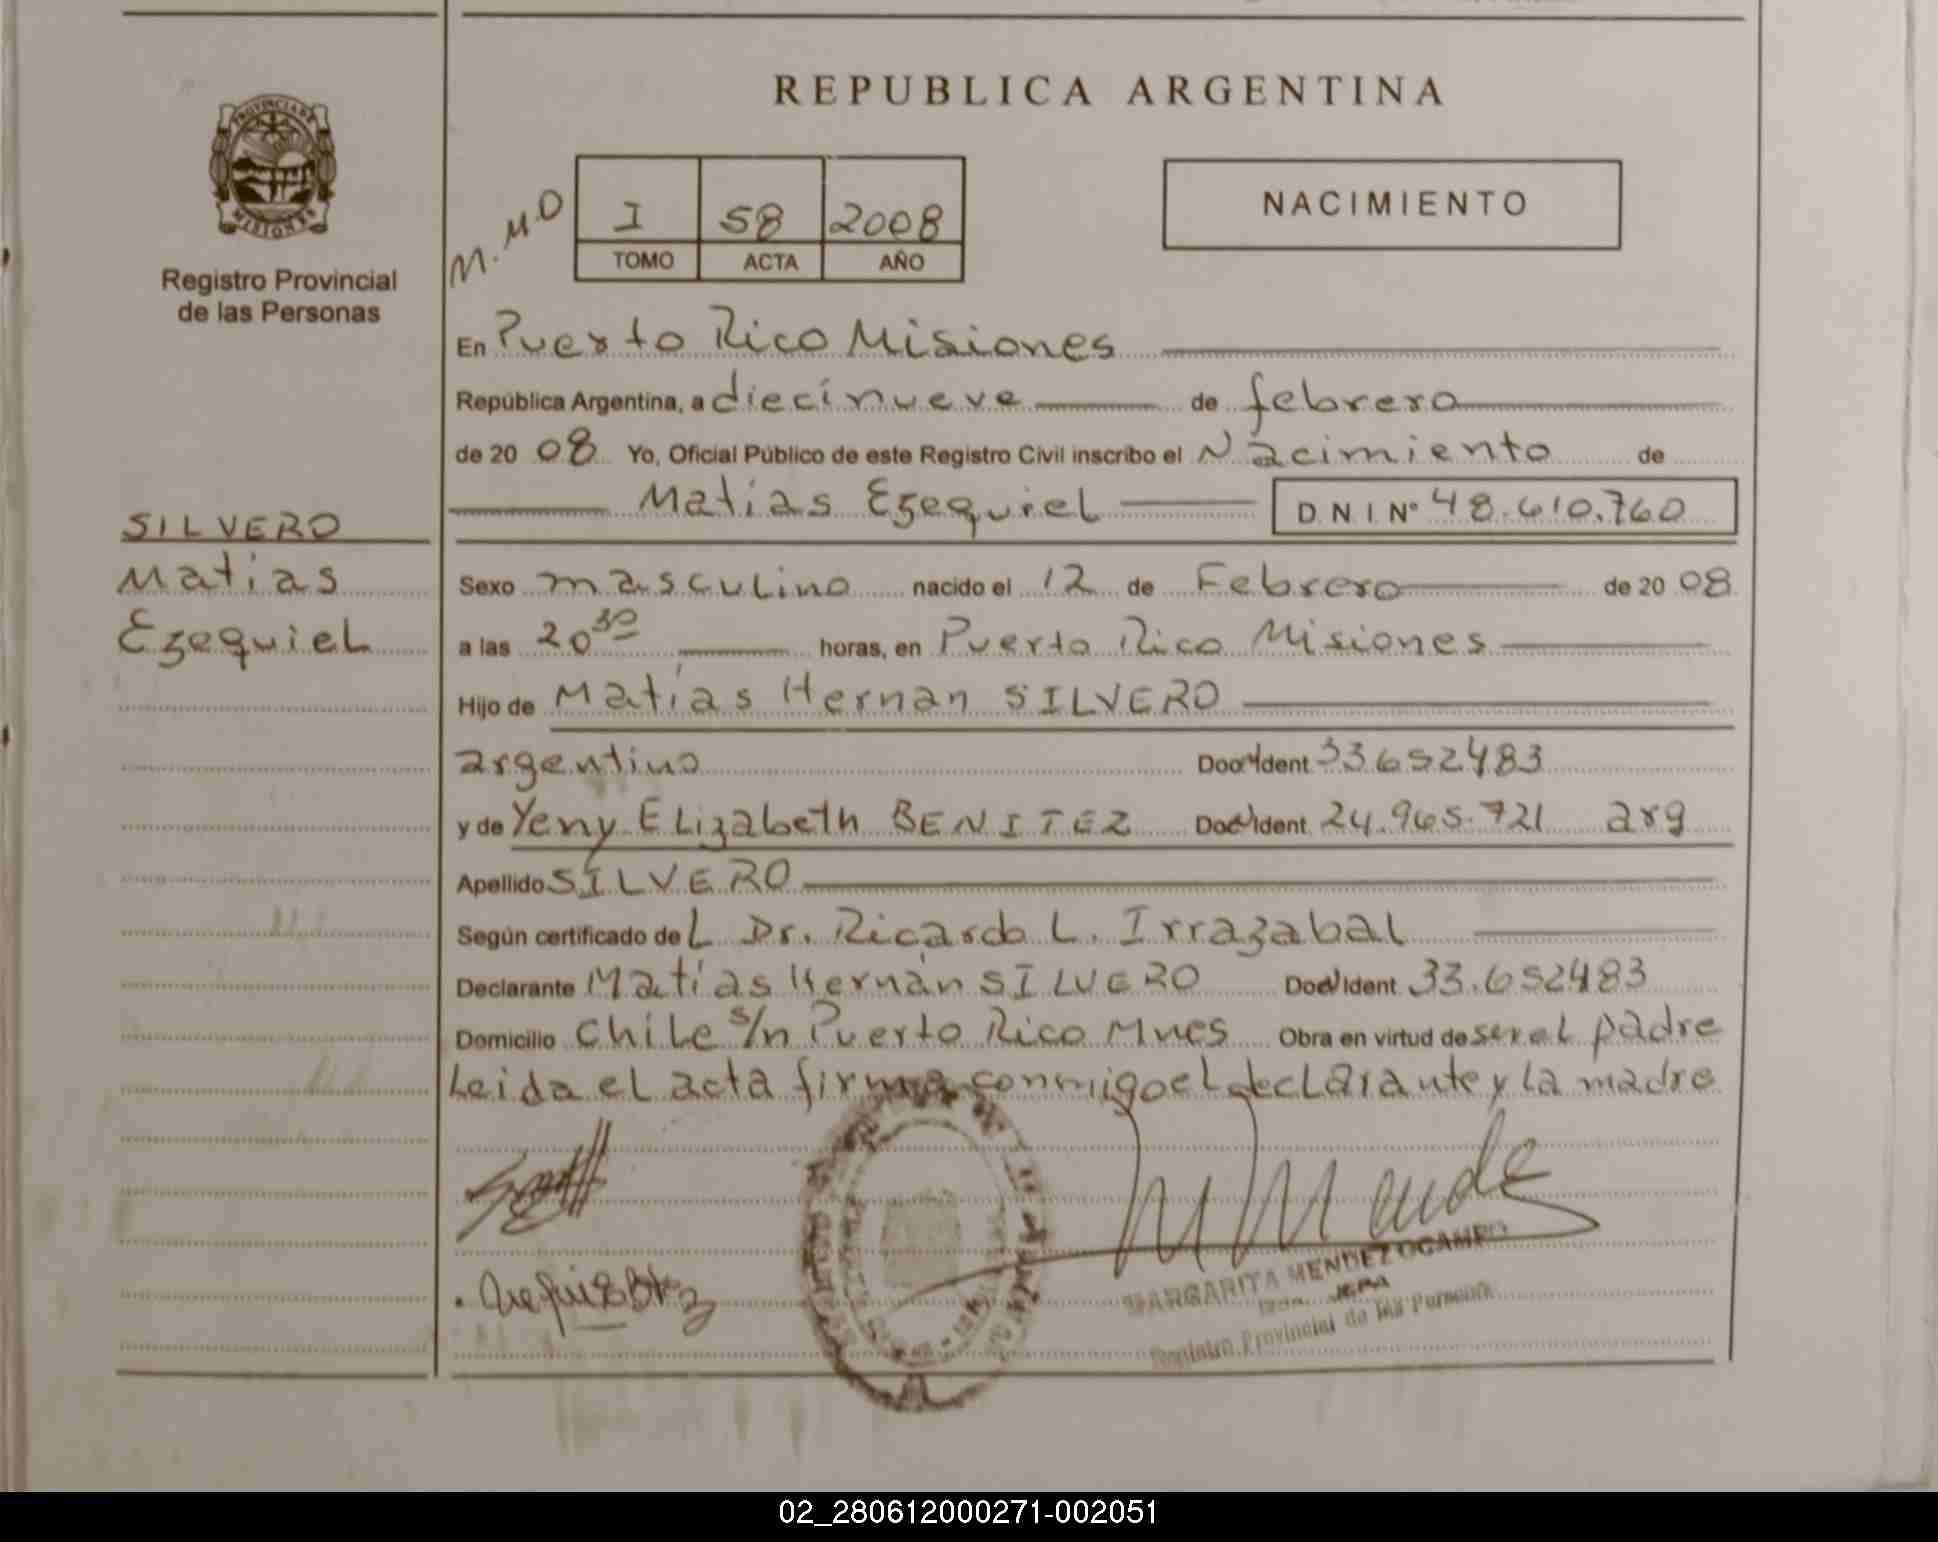 REPUBLICA ARGENTINA
PROVINCIA DE
MISIONES
Registro Provincial
de las Personas
M.M.O
I 58 2008
TOMO ACTA AÑO
NACIMIENTO
En Puerto Rico Misiones
República Argentina, a diecinueve de febrero
de 2008 Yo, Oficial Público de este Registro Civil inscribo el Nacimiento de
Matias Ezequiel D N I Nº 48.610.760
SILVERO
Matias
Ezequiel
Sexo masculino nacido el 12 de Febrero de 2008
a las 20 30 horas, en Puerto Rico Misiones
Hijo de Matías Hernan SILVERO
argentino Doc Ident 33652483
y de Yeny Elizabeth BENITEZ Doc Ident 24.965.721 arg
Apellido SILVERO
Según certificado de L Dr. Ricardo L. Irrazabal
Declarante Matías Hernán SILVERO Doc Ident 33.652483
Domicilio Chile s/n Puerto Rico Mnes Obra en virtud de ser el padre
Leida el acta firma conmigo el declarante y la madre
MARGARITA MENDEZ OCAMPO
JEFA
Registro Provincial de las Personas
02_280612000271-002051